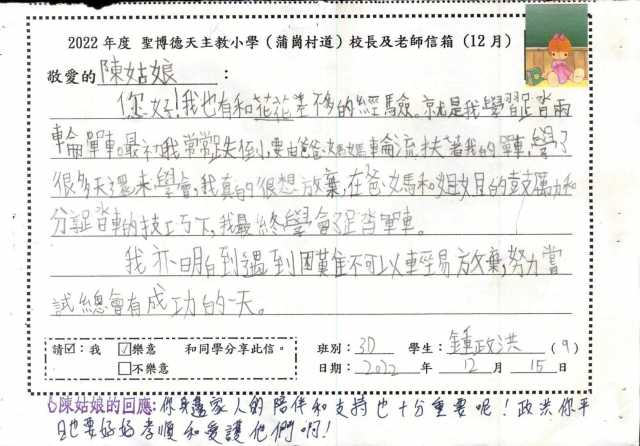 2022 年度 聖博德天主教小學（蒲崗村道）校長及老師信箱（12月）
敬愛的 陳姑娘 ：
你好！我也有和花花差不多的經驗。就是我學習踏兩
輪單車。最初我常常跌倒，要由爸爸、媽媽輪流扶著我的單車，學了
很多天還未學會，我真的很想放棄，在爸媽和姐姐的鼓勵和
分享踏車的技巧下，我最終學會了踏單車。
我亦明白到遇到困難不可以輕易放棄，努力嘗
試總會有成功的一天。
請☑：我 ☑樂意 和同學分享此信。
□不樂意
班別： 3D 學生： 鍾政洪 （ 9 ）
日期： 2022 年 12 月 15 日
陳姑娘的回應：你身邊家人的陪伴和支持也十分重要呢！政洪你平
日也要好好孝順和愛護他們啊！